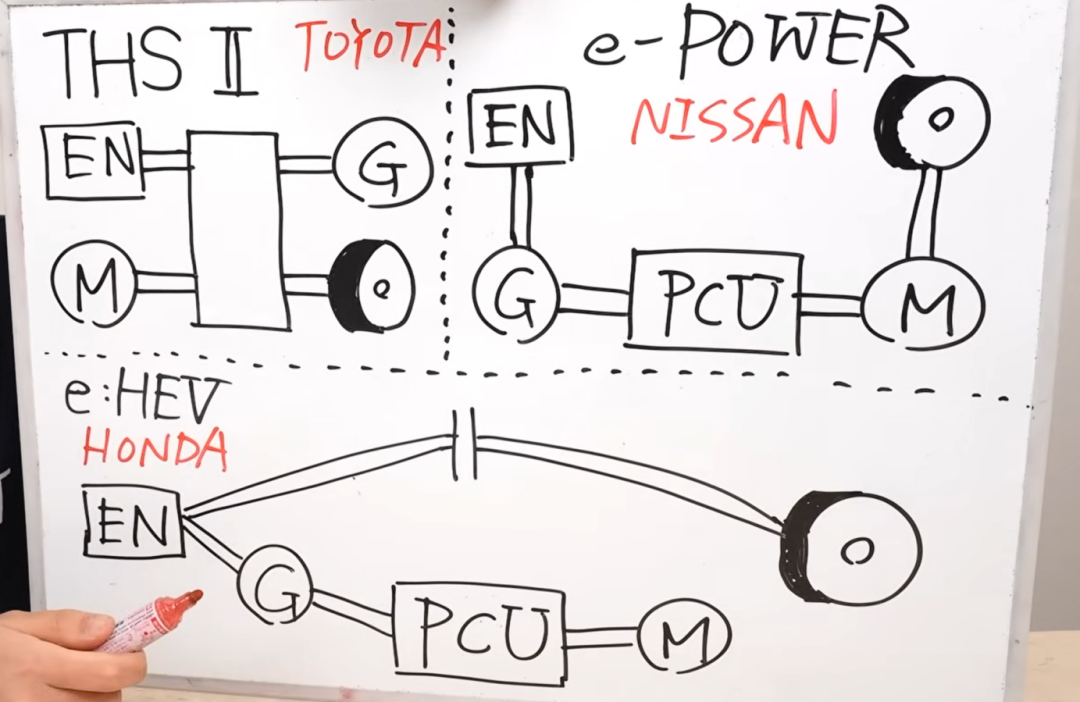 THS II TOYOTA
EN
G
M
e-POWER
NISSAN
EN
G
PCU
M
e:HEV
HONDA
EN
G
PCU
M